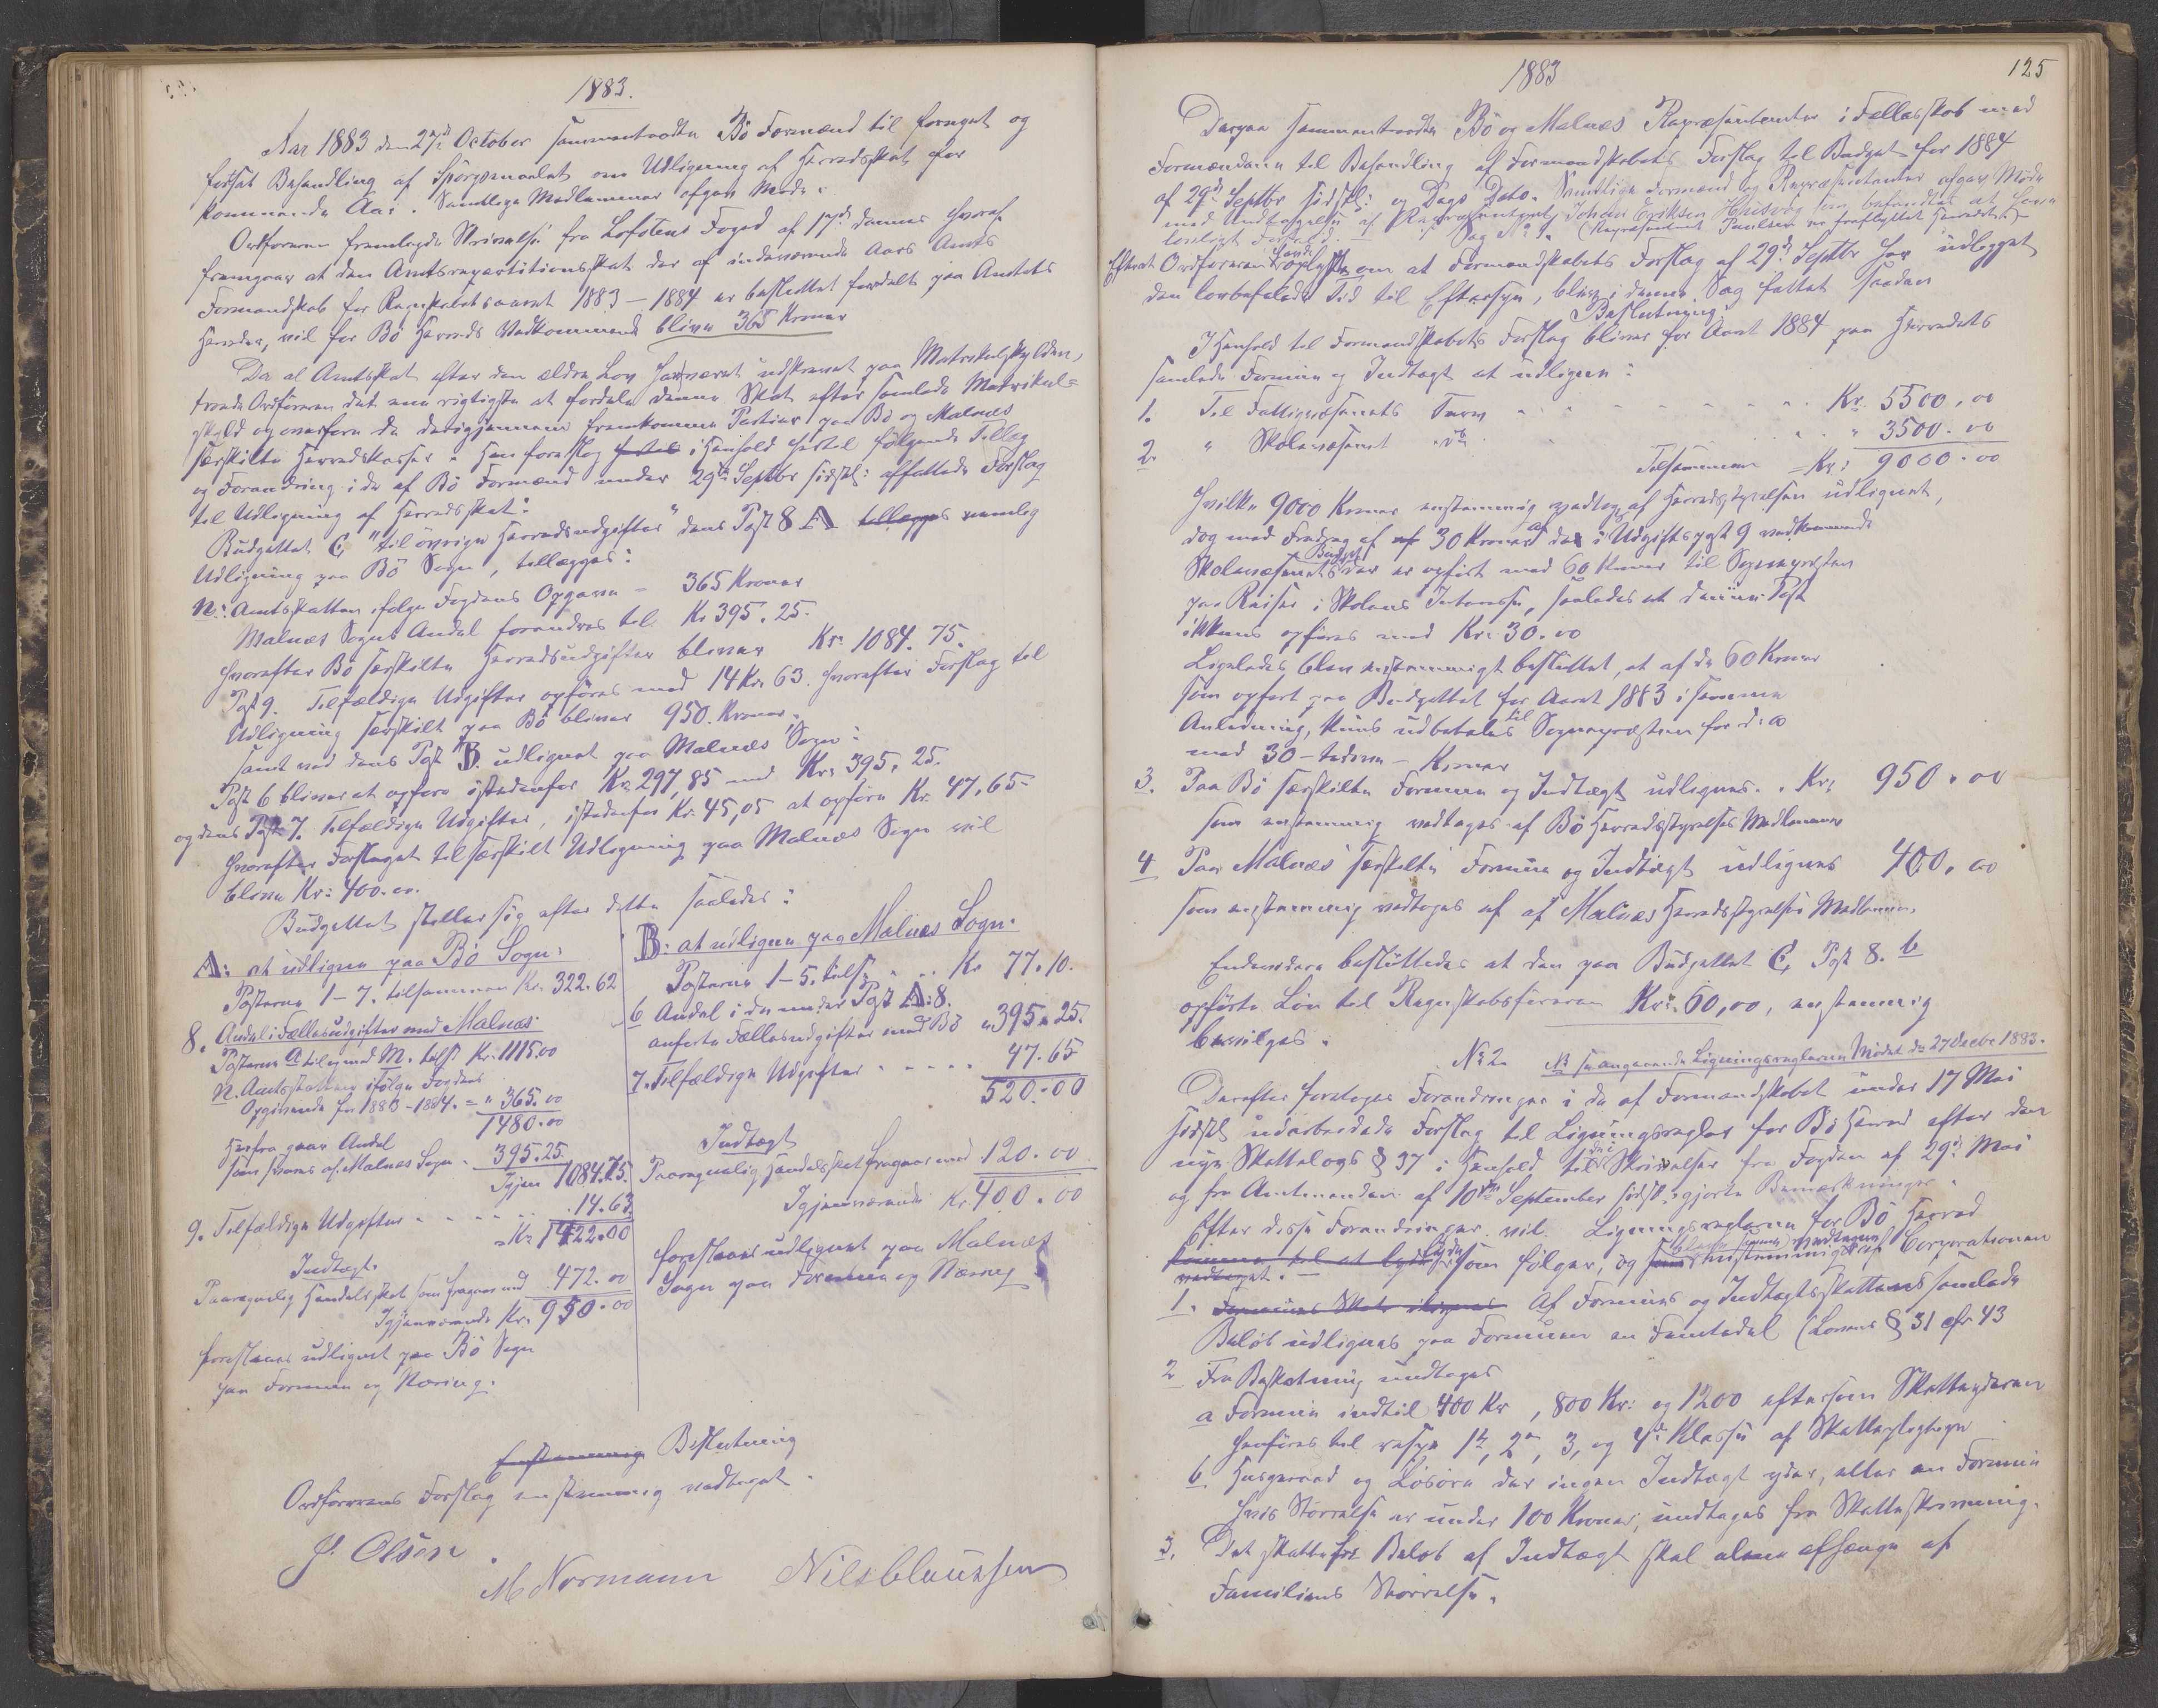 1883.
Aar 1883 den 27de October sammentraadte Bö Formænd til fornyet og
fortsat Behandling af Spörgsmaalet om Udligning af Herredsskat for
kommende Aar. Samtlige Medlemmer afgav Möde.
Ordføreren fremlagde Skrivelse fra Lofotens Foged af 17de dennes hvoraf
fremgaar at den Amtsrepartitionsskat der af indeværende Aars Amts
Formandskab for Regnskabsaaret 1883–1884 er besluttet fordelt paa Amtets
Herreder, vil for Bö Herreds Vedkommende blive 365 Kroner
Da al Amtsskat efter den ældre Lov har været udskrevet paa Matrikulskylden,
troede Ordföreren det var rigtigst at fordele denne Skat efter samlede Matrikul-
skyld og overføre de derigjennem fremkomne Partier paa Bö og Malnes
særskilte Herredskasser. Han foreslog i Henhold hertil følgende Tillæg
og Forandring i de af Bö Formænd under 29de Septbr sidstl: affattede Forslag
til Udligning af Herredsskat:
Budgettet C, "til övrige Herredsudgifter" dens Post 8 A tillægges nemlig
Udligning paa Bö Sogn, tillægges:
N: Amtsskatten ifølge Fogdens Opgave – 365 Kroner
Malnes Sogns Andel forandres til Kr 395.25.
hvorefter Bö særskilte Herredsudgifter bliver Kr: 1084.75.
Post 9. Tilfældige Udgifter opföres med 14 Kr: 63. hvorefter Forslag til
Udligning særskilt paa Bö bliver 950. Kroner.
samt ved dens Post B. udlignet paa Malnæs Sogn:
Post 6 bliver at opføre istedenfor Kr: 297,85 med Kr: 395.25.
og dens Post 7. Tilfældige Udgifter, istedenfor Kr. 45,05 at opføre Kr. 47,65
hvorefter Forslaget til særskilt Udligning paa Malnæs Sogn vil
blive Kr: 400.00.
Budgettet stiller sig efter dette saaledes:
A: at udligne paa Bö Sogn:
Posterne 1–7. tilsammen Kr. 322.62
8. Andel i Fællesudgifter med Malnæs:
Posterne a til og med M. tils. Kr: 1115.00
N. Amtsskatten ifölge Fogdens
Opgivende for 1883–1884. = " 365.00
1480.00
Herfra gaar Andel
som svares af Malnes Sogn - 395.25.
Igjen 1084.75.
9. Tilfældige Udgifter - - - - 14.63
= Kr 1422.00
Indtægt.
Paaregnelig Handelsskat som fragaar med 472.00
Igjenværende Kr. 950.00
foreslaaes udlignet paa Bö Sogn
paa Formue og Næring.
B: at udligne paa Malnes Sogn.
Posterne 1–5. tils. . . . Kr 77.10.
6 Andel i de under Post A:8.
anførte Fællesudgifter med Bö " 395.25.
7. Tilfældige Udgifter - - - - - 47.65
520.00
Indtægt
Paaregnelig Handelsskat fragaar med 120.00
Igjenværende Kr. 400.00
foreslaaes udlignet paa Malnæs
Sogn paa Formue og Næring
Enstemmig Beslutning
Ordførerens Forslag enstemmig vedtaget.
J. Olsen. M Normann Nils Claussen
1883
125
Derpaa sammentraadte Bö og Malnes Repræsentanter i Fællesskab med
Formændene til Behandling af Formandskabets Forslag til Budget for 1884
af 29de Septbr sidstl: og Dags Dato. Samtlige Formænd og Repræsentanter afgav Möde
med Undtagelse af Repræsentant Johan Eriksen som befandtes at have
lovligt Forfald. Sag No 1. (Repræsentant Paulsen er fraflyttet Herredet)
Efterat Ordføreren havde oplyst om at Formandskabets Forslag af 29de Septbr har udlegget
den lovbefalede Tid til Eftersyn, blev i denne Sag fattet saadan
Beslutning:
I Henhold til Formandskabets Forslag bliver for Aaret 1884 paa Herredets
samlede Formue og Indtægt at udligne:
1. Til Fattigvæsenets Tarv - - - - - - Kr. 5500.00
2. " Skolevæsenet " - - " 3500.00
Tilsammen = Kr: 9000.00
Hvilke 9000 Kroner enstemmig vedtages af Herredsstyrelsen udlignet,
dog med Fradrag af 30 Kroner af de i Udgiftspost 9 vedkommende
Skolevæsenets Budget der er opfört med 60 Kroner til Sognepresten
paa Reiser i Skolens Interesse, saaledes at denne Post
ikkuns opføres med Kr: 30.00
Ligeledes blev enstemmigt besluttet, at af de 60 Kroner
som opført paa Budgettet for Aaret 1883 i samme
Anledning, kuns udbetales til Sognepresten for d: a
med 30 – tredive – Kroner
3. Paa Bö særskilte Formue og Indtægt udlignes. . Kr: 950.00
som enstemmig vedtages af Bö Herredsstyrelses Medlemmer
4 Paa Malnæs særskilte Formue og Indtægt udlignes 400.00
som enstemmig vedtages af af Malnæs Herredsstyrelses Medlemmer.
Endvidere besluttedes at den paa Budgettet C, Post 8. b
opförte Lön til Regnskabsføreren Kr: 60,00, enstemmig
bevilges.
No 2. NB angaaende Ligningsreglerne Mödet den 27 Decbr 1883.
Derefter foretoges Forandringer i de af Formandskabet under 17 Mai
sidstl udarbeidede Forslag til Ligningsregler for Bö Herred efter den
nye Skattelovs § 37 i Henhold til de i Skrivelser fra Fogden af 29de Mai
og fra Amtmanden af 10de September sidstl. gjorte Bemærkninger.
Efter disse Forandringer vil Ligningsreglerne for Bö Herred
komme til at lyde som følger, og enstemmig vedtagen af Corporationen
vedtaget. –
1. Formues Skat Af Formues og Indtægtsskattens samlede
Beløb udlignes paa Formuen en Femtedel (Lovens § 31 cfr 43
2 Fra Beskatning undtages
a Formue indtil 400 Kr, 800 Kr: og 1200 eftersom Skatteyderen
henføres til resp. 1ste, 2den, 3, og 4de Klasse af Skattepligtige
b Husgeraad og Løsøre der ingen Indtægt yder, eller en Formue
hvis Størrelse er under 100 Kroner, undtages fra Skatteskrivning.
3. Det skattefri Beløb af Indtægt skal alene afhænge af
Familiens Størrelse.